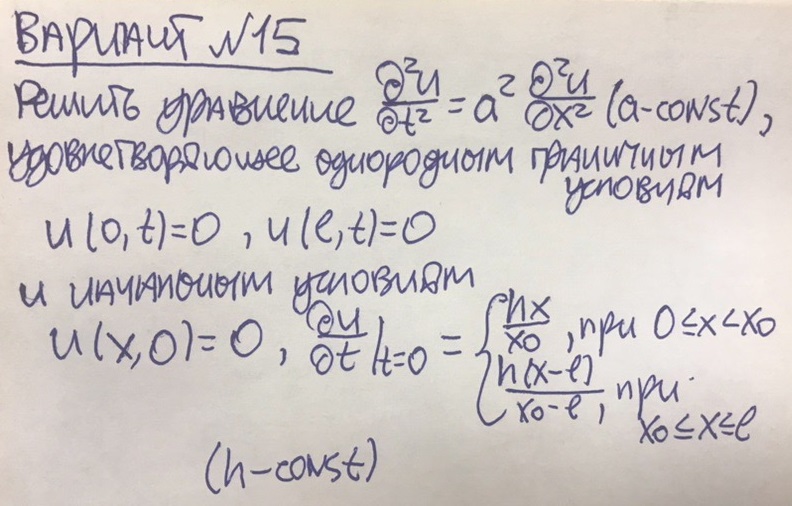 ВАРИАНТ №15
Решить уравнение ∂²u/∂t² = a² ∂²u/∂x² (a-const),
удовлетворяющее однородным граничным
условиям
u(0,t)=0, u(l,t)=0
и начальным условиям
u(x,0)=0, ∂u/∂t|t=0 = { hx/x₀, при 0≤x<x₀
h(x-l)/x₀-l, при
x₀≤x≤l
(h-const)